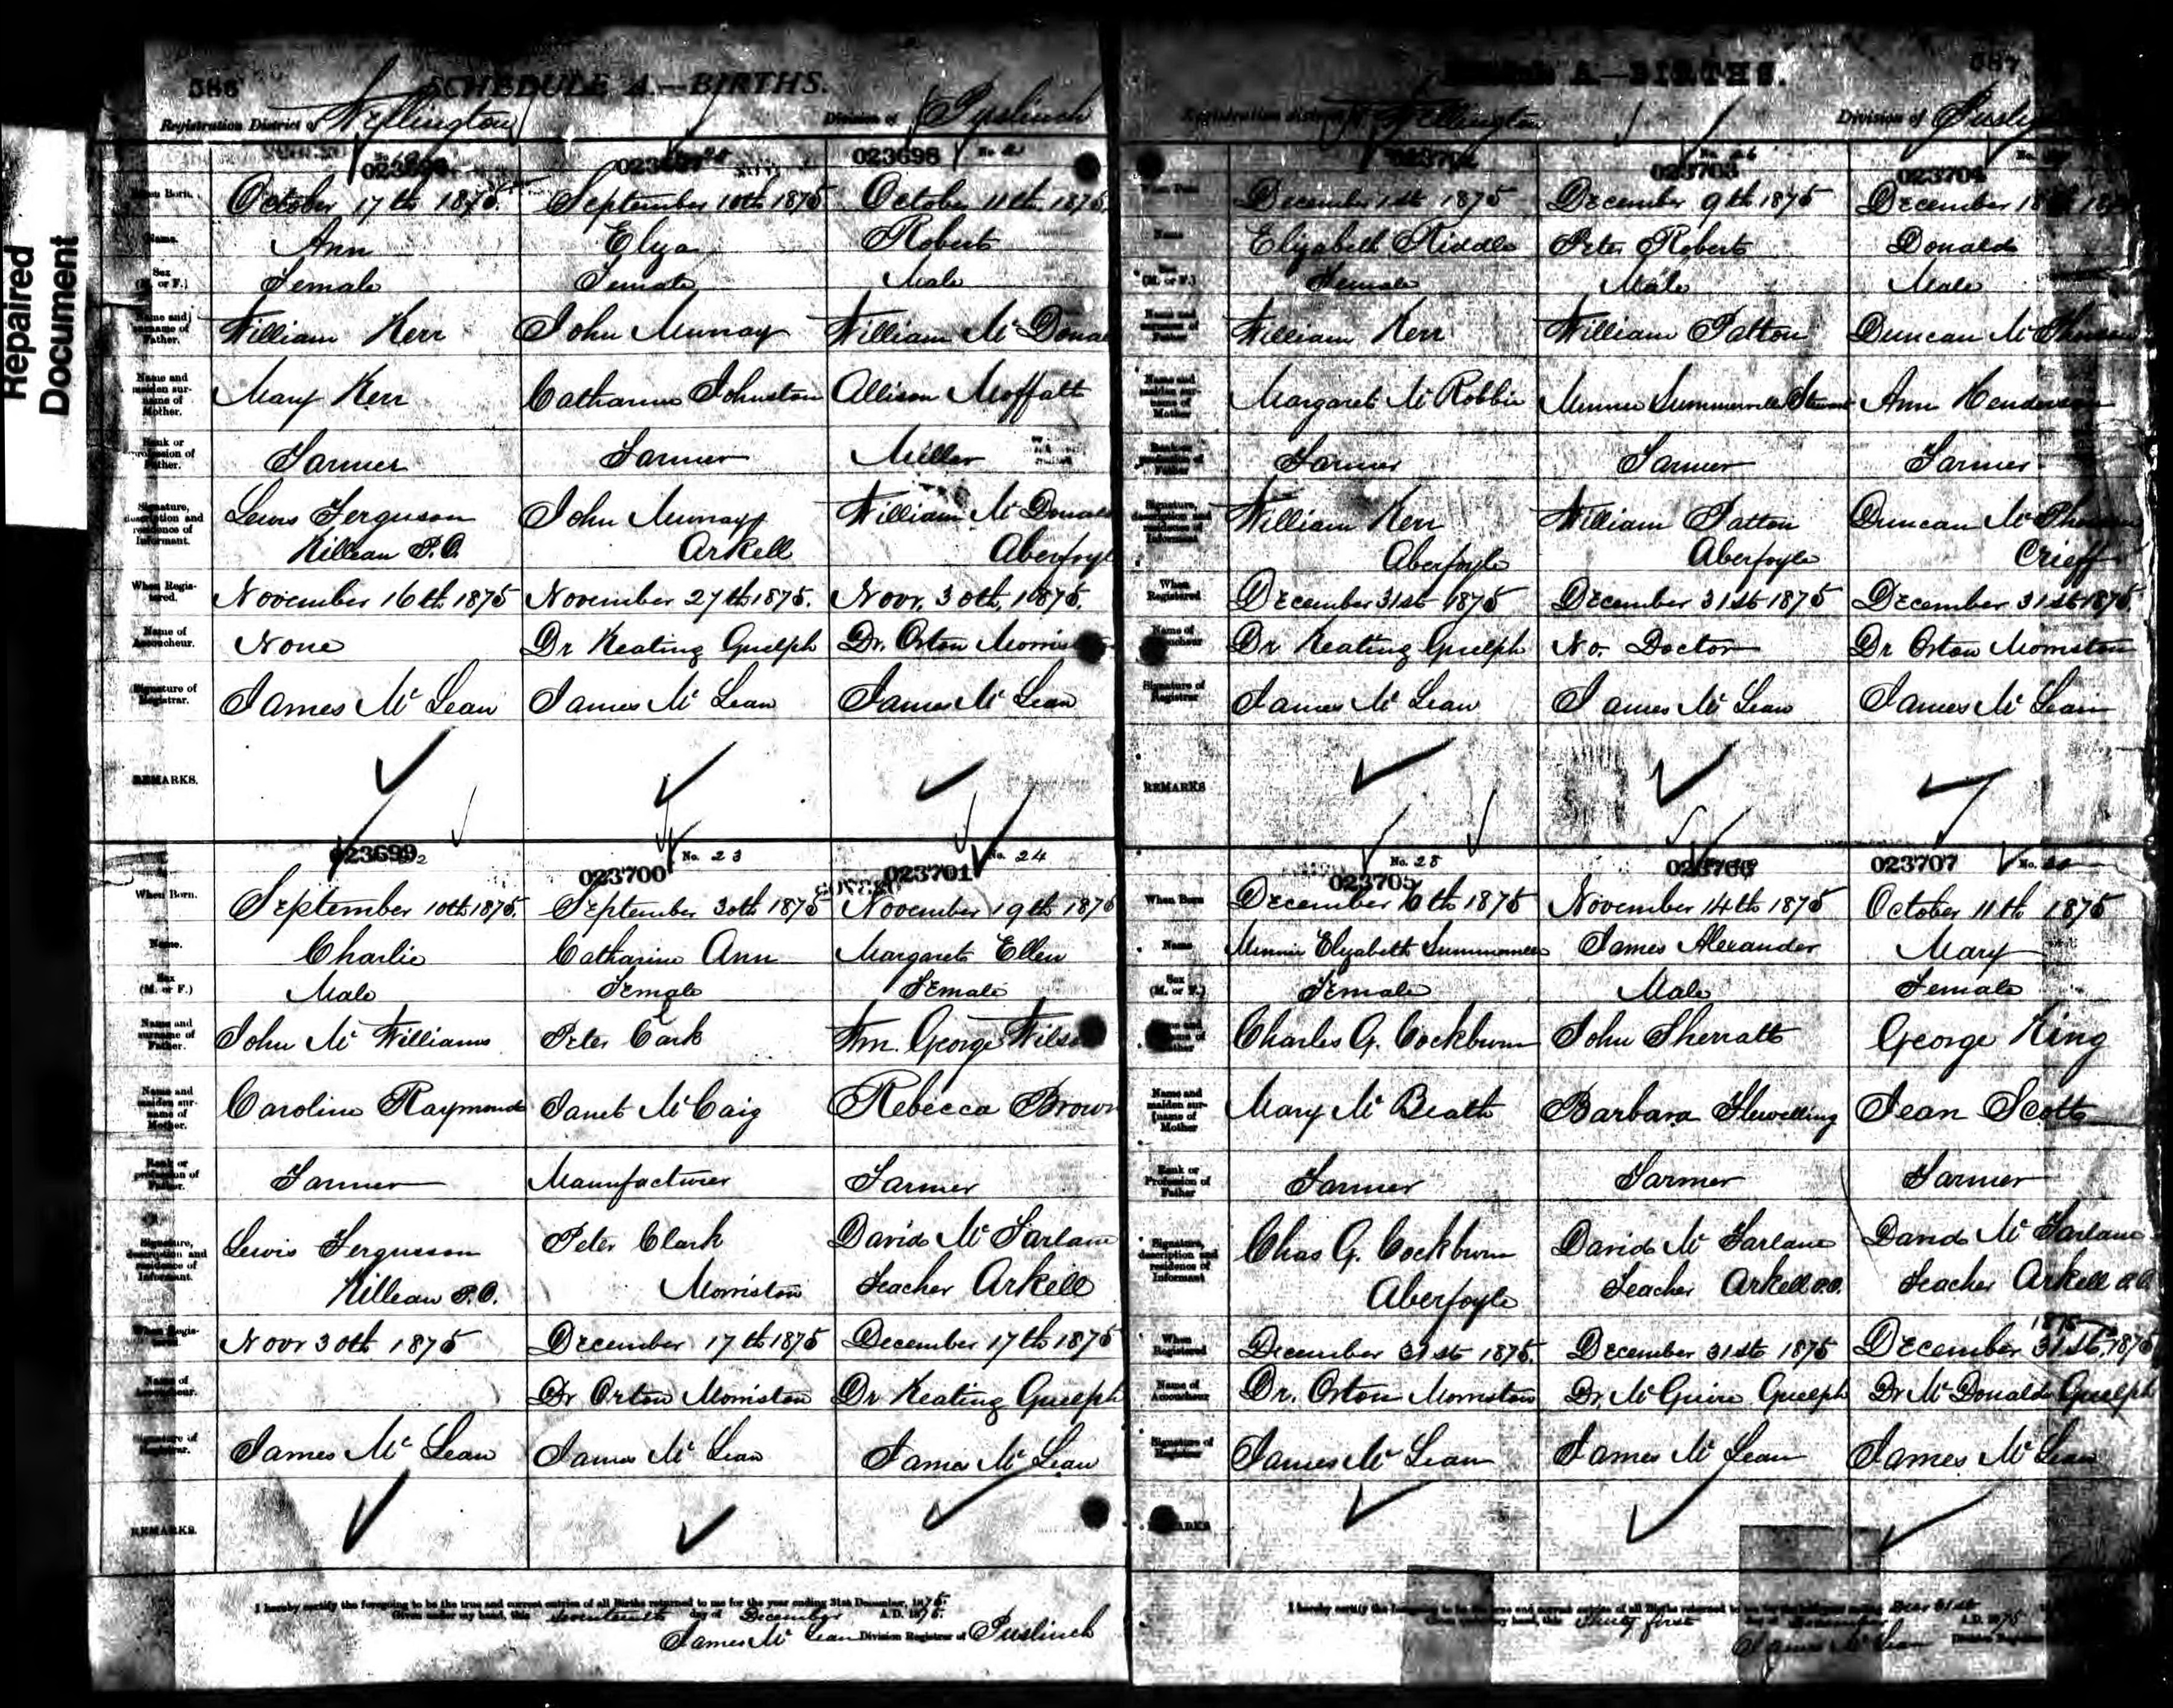 Repaired
Document
586
SCHEDULE A.—BIRTHS.
Registration District of Wellington
Division of Puslinch
023698
When Born. October 17th 1875. September 10th 1875 October 11th 1875.
Name. Ann Eliza Robert
Sex (M. or F.) Female Female Male
Name and surname of Father. William Kerr John Murray William Mc Dona
Name and maiden surname of Mother. Mary Kerr Catharine Johnston Allison Moffatt
Rank or profession of Father. Farmer Farmer Miller
Signature, description and residence of Informant. Lewis Ferguson John Murray William Mc Donald
Killean P.O. Arkell Aberfoyl
When Registered. November 16th 1875 November 27th 1875. Novr. 30th, 1875.
Name of Accoucheur. None Dr Keating Guelph Dr. Orton Morris
Signature of Registrar. James Mc Lean James Mc Lean James Mc Lean
REMARKS.
023699 023700 No. 23 023701 No. 24
When Born. September 10th 1875. September 30th 1875 November 19th 1875
Name. Charlie Catharine Ann Margaret Ellen
Sex (M. or F.) Male Female Female
Name and surname of Father. John Mc Williams Peter Cark Wm. George Wilso
Name and maiden surname of Mother. Caroline Raymond Janet McCaig Rebecca Brown
Rank or profession of Father. Farmer Manufacturer Farmer
Signature, description and residence of Informant. Lewis Fergusson Peter Clark David Mc Farlane
Killean P.O. Morriston Teacher Arkell
When Registered. Novr 30th 1875 December 17th 1875 December 17th 1875
Name of Accoucheur. Dr Orton Morriston Dr Keating Guelph
Signature of Registrar. James Mc Lean James Mc Lean James Mc Lean
REMARKS.
I hereby certify the foregoing to be the true and correct entries of all Births returned to me for the year ending 31st December, 1875.
Given under my hand, this Seventeenth day of December A.D. 1875.
James Mc Lean Division Registrar of Puslinch
587
A.—BIRTHS.
Registration District of Wellington
Division of
023703 023704
December 1st 1875 December 9th 1875 December 18th
Name Elizabeth Riddle Peter Robert Donald
Sex (M. or F.) Female Male Male
Name and surname of Father William Kerr William Patton Duncan Mc
Name and maiden surname of Mother Margaret Mc Robbie Minnie Summerville Stewart Ann Henderson
Farmer Farmer Farmer
Signature, description and residence of Informant William Kerr William Patton Duncan Mc
Aberfoyle Aberfoyle Crieff
When Registered December 31st 1875 December 31st 1875 December 31st 1875.
Name of Accoucheur Dr Keating Guelph No. Doctor Dr Orton Morriston
Signature of Registrar James Mc Lean James Mc Lean James Mc Lean
REMARKS
No. 28
023705 023707
When Born December 16th 1875 November 14th 1875 October 11th 1875
Name Minnie Elizabeth James Alexander Mary
Sex (M. or F.) Female Male Female
Charles G. Cockburn John Sherratt George King
Name and maiden surname of Mother Mary Mc Beath Barbara Flewelling Jean Scott
Rank or Profession of Father Farmer Farmer Farmer
Signature, description and residence of Informant Chas G. Cockburn David Mc Farlane David Mc Farlane
Aberfoyle Teacher Arkell P.O. Teacher Arkell P.O.
1875
When Registered December 31st 1875. December 31st 1875 December 31st, 1875
Name of Accoucheur Dr. Orton Morriston Dr. McGuire Guelph Dr McDonald Guelph
Signature of Registrar James Mc Lean James Mc Lean James Mc Lean
I hereby certify the
Thirty first A.D. 1875
James Mc Lean